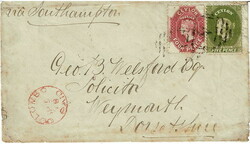 via Southampton
CEYLON
CEYLON
Geo. B. Welsford Esq
Solicitor
Weymouth
Dorsetshire
COLOMBO